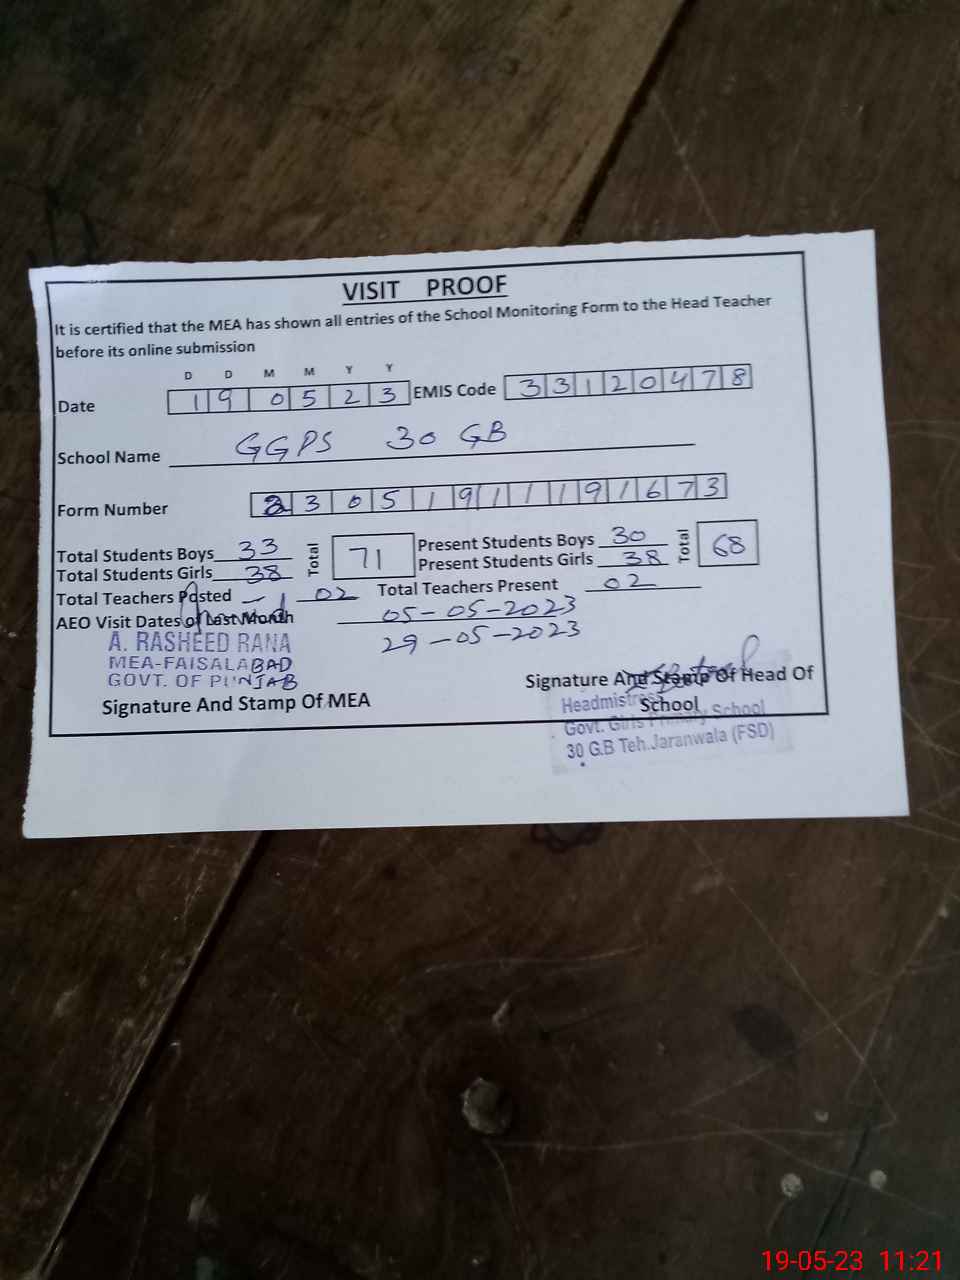 VISIT PROOF
It is certified that the MEA has shown all entries of the School Monitoring Form to the Head Teacher
before its online submission
D D M M Y Y
Date 190523 EMIS Code 33120478
School Name GGPS 30 GB
Form Number 230519111191673
Total Students Boys 33 Total 71 Present Students Boys 30 Total 68
Total Students Girls 38 Present Students Girls 38
Total Teachers Posted 02 Total Teachers Present 02
AEO Visit Dates of Last Month 05-05-2023
29-05-2023
A. RASHEED RANA
MEA-FAISALABAD
GOVT. OF PUNJAB
Signature And Stamp Of MEA
Signature And Stamp Of Head Of
School
Headmistress
Govt. Girls Primary School
30 G.B Teh.Jaranwala (FSD)
19-05-23 11:21